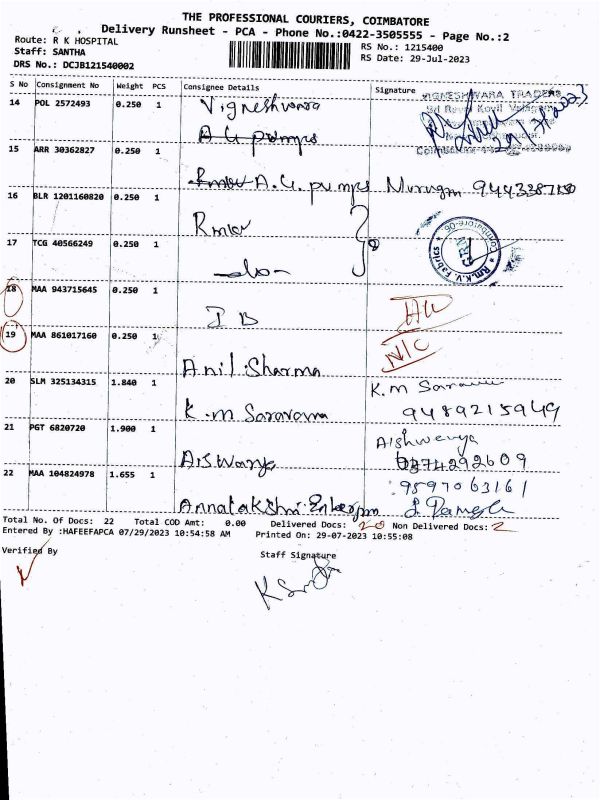 THE PROFESSIONAL COURIERS, COIMBATORE
Delivery Runsheet - PCA - Phone No.:0422-3505555 - Page No.:2
Route: R K HOSPITAL
Staff: SANTHA
DRS No.: DCJB121540002
RS No.: 1215400
RS Date: 29-Jul-2023
S No Consignment No Weight PCS Consignee Details Signature
14 POL 2572493 0.250 1 Vigneshwara
VIGNESHWARA TRADERS
A.G pumps
15 ARR 30362827 0.250 1 A.G. pumps Murugan
16 BLR 1201160820 0.250 1 Rmkv
17 TCG 40566249 0.250 1 -do-
Rm.K.V. Fabrics
18 MAA 943715645 0.250 1 I B
19 MAA 861017160 0.250 1 Anil Sharma N/C
20 SLM 325134315 1.840 1 K.M Saravana K.M
9489215949
21 PGT 6820720 1.900 1 Aiswarya Aishwarya
22 MAA 104824978 1.655 1 Annalakshmi
9597063161
Total No. Of Docs: 22 Total COD Amt: 0.00 Delivered Docs: 20 Non Delivered Docs: 2
Entered By :HAFEEFAPCA 07/29/2023 10:54:58 AM Printed On: 29-07-2023 10:55:08
Verified By Staff Signature